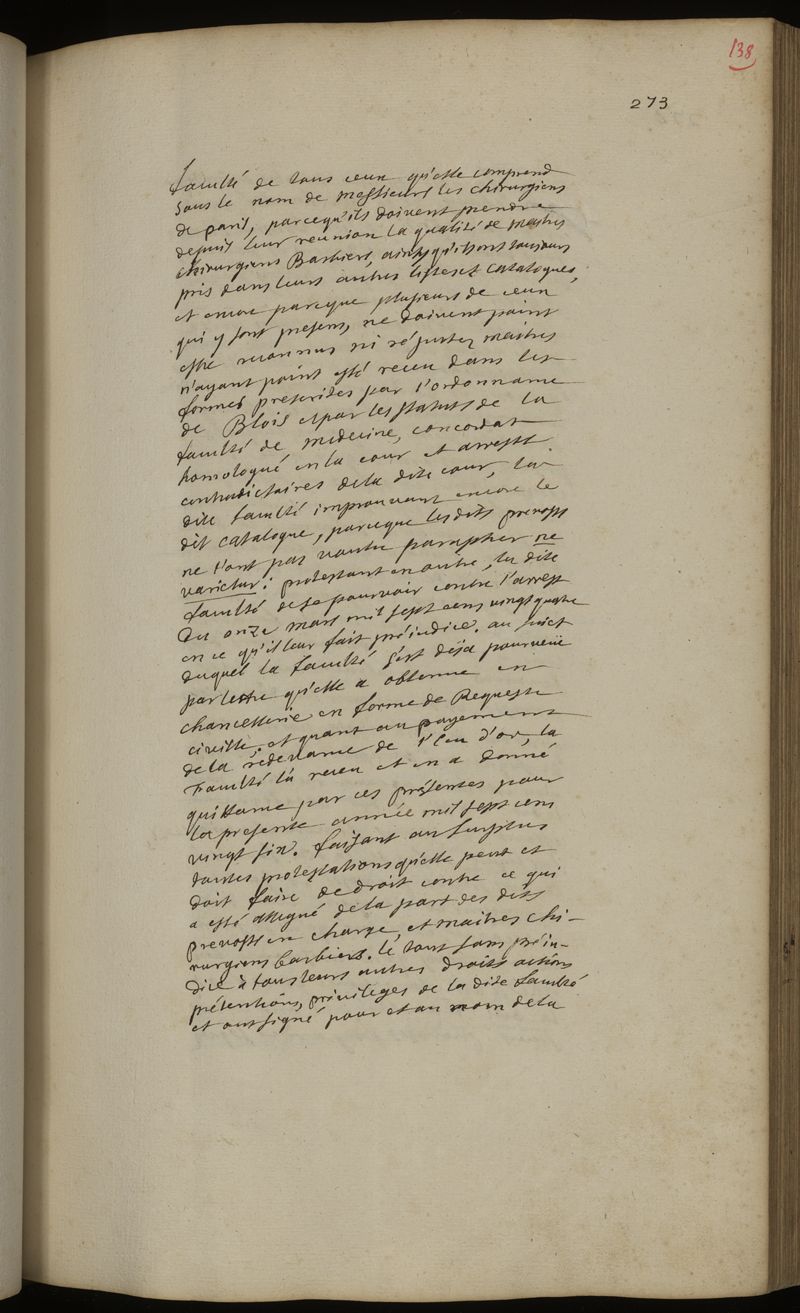 138
273
faculté de tous ceux qu'elle comprend
sous le nom de messieurs les chirurgiens
de paris, parcequ'ils doivent prendre
depuis leur reunion la qualité de maitres
chirurgiens Barbiers, ainsy qu'ils ont toujours
pris dans leurs autres listes et catalogues,
et encore parceque plusieurs de ceux
qui y sont presens, ne doivent point
estre reconnus ni réputez maitres
n'ayant point esté receu dans les
formes prescrites par l'ordonnance
de Blois et par les statuts de la
faculté de medecine, concordat
homologué en la cour et arrests
contradictoires de la dite cour, la
dite faculté improuvant encore le
dit catalogue, parceque lesdits prevosts
ne l'ont pas voulu parapher ne
varietur: protestant en outre, la dite
faculté de se pourvoir contre l'arrest
du onze mars mil sept cens vingt quatre
en ce qu'il leur fait préiudice. au suiet
duquel la faculté s'est déja pourveüe
par lettre qu'elle a obtenue en
chancellerie en forme de Requeste
civille, et quant au payement
de la redevance de l'Ecu d'or, la
Faculté l'a receu et en a donné
quittance par ces présentes pour
la presente année mil sept cens
vingt six. faisant au surplus
toutes protestations qu'elle peut et
doit faire de droit contre ce qui
a esté allegué de la part des dits
prevosts en charge, et maitres chi-
rurgiens barbiers. le tout sans préiu-
dice à tous leurs autres droits actions
prétentions, privileges de la dite faculté
et ont signé pour et au nom de la